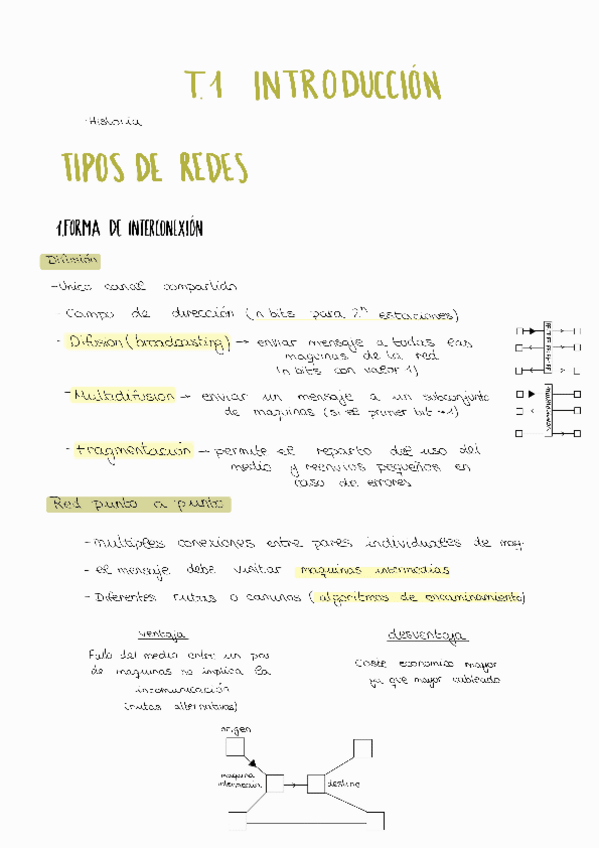 T.1 INTRODUCCIÓN
-Historia
TIPOS DE REDES
1.FORMA DE INTERCONEXIÓN
Difusión
-Unico canal compartido
- Campo de dirección (n bits para 2ⁿ estaciones)
- Difusion (broadcasting) → enviar mensaje a todas las
maquinas de la red
(n bits con valor 1)
- Multidifusion → enviar un mensaje a un subconjunto
de maquinas (si el primer bit → 1)
- Fragmentación → permite el reparto del uso del
medio y reenvios pequeños en
caso de errores
Red punto a punto
- multiples conexiones entre pares individuales de maq.
- el mensaje debe visitar maquinas intermedias
- Diferentes rutas o caminos (algoritmos de encaminamiento)
ventaja
Fallo del medio entre un par
de maquinas no implica la
incomunicación
(rutas alternativas)
desventaja
Coste economico mayor
ya que mayor cableado
origen
maquina
intermedia
destino